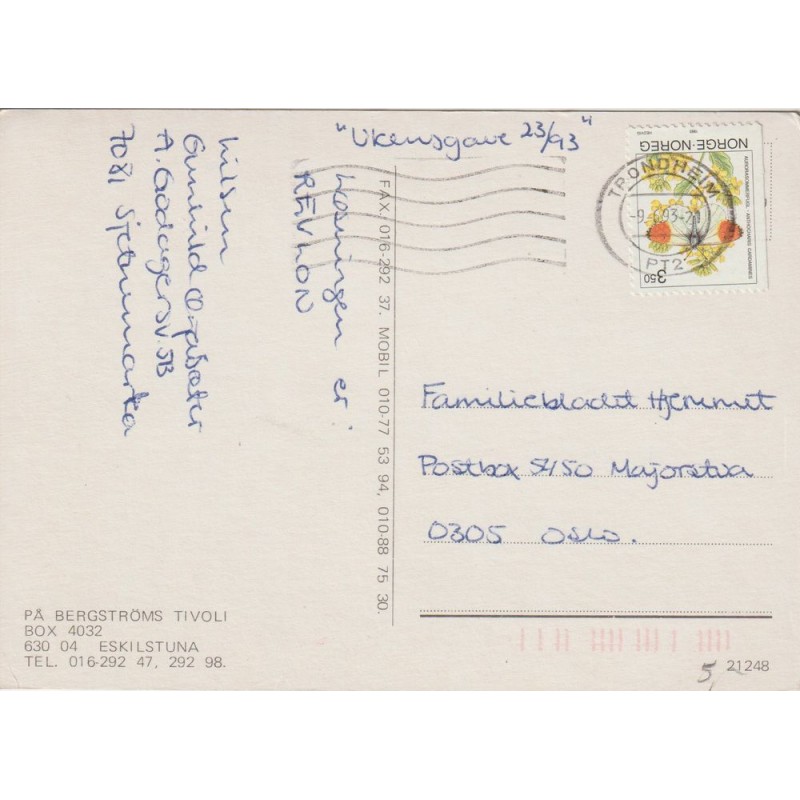 "Ukensgave 23/93"
Løsningen er:
REVLON
hilsen
Gunhild
A. Gødagersv. 5B
7081 Sjetnmarka
NORGE·NOREG
3,50
TRONDHEIM
-9.-6.93-21
PT2
Familiebladet Hjemmet
Postbox 5450 Majorstua
0305 Oslo.
FAX. 016-292 37. MOBIL 010-77 53 94, 010-88 75 30.
PÅ BERGSTRÖMS TIVOLI
BOX 4032
630 04 ESKILSTUNA
TEL. 016-292 47, 292 98.
5,
21248